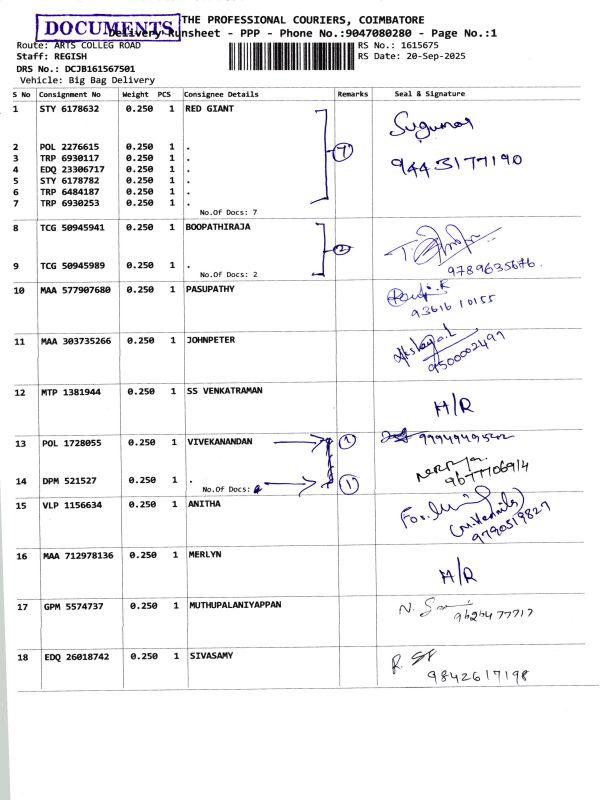 DOCUMENTS
THE PROFESSIONAL COURIERS, COIMBATORE
Delivery Runsheet - PPP - Phone No.:9047080280 - Page No.:1
Route: ARTS COLLEG ROAD
RS No.: 1615675
Staff: REGISH
RS Date: 20-Sep-2025
DRS No.: DCJB161567501
Vehicle: Big Bag Delivery
S No Consignment No Weight PCS Consignee Details Remarks Seal & Signature
1 STY 6178632 0.250 1 RED GIANT
Sugumar
2 POL 2276615 0.250 1 .
3 TRP 6930117 0.250 1 . 7 9443177190
4 EDQ 23306717 0.250 1 .
5 STY 6178782 0.250 1 .
6 TRP 6484187 0.250 1 .
7 TRP 6930253 0.250 1 .
No.Of Docs: 7
8 TCG 50945941 0.250 1 BOOPATHIRAJA
2
9 TCG 50945989 0.250 1 . 9789635676.
No.Of Docs: 2
10 MAA 577907680 0.250 1 PASUPATHY
93616 10155
11 MAA 303735266 0.250 1 JOHNPETER
9500002497
12 MTP 1381944 0.250 1 SS VENKATRAMAN
H/R
13 POL 1728055 0.250 1 VIVEKANANDAN 1
14 DPM 521527 0.250 1 . 1 9677706914
No.Of Docs:
15 VLP 1156634 0.250 1 ANITHA
9790519827
16 MAA 712978136 0.250 1 MERLYN
H/R
17 GPM 5574737 0.250 1 MUTHUPALANIYAPPAN
N.
18 EDQ 26018742 0.250 1 SIVASAMY R
9842617198